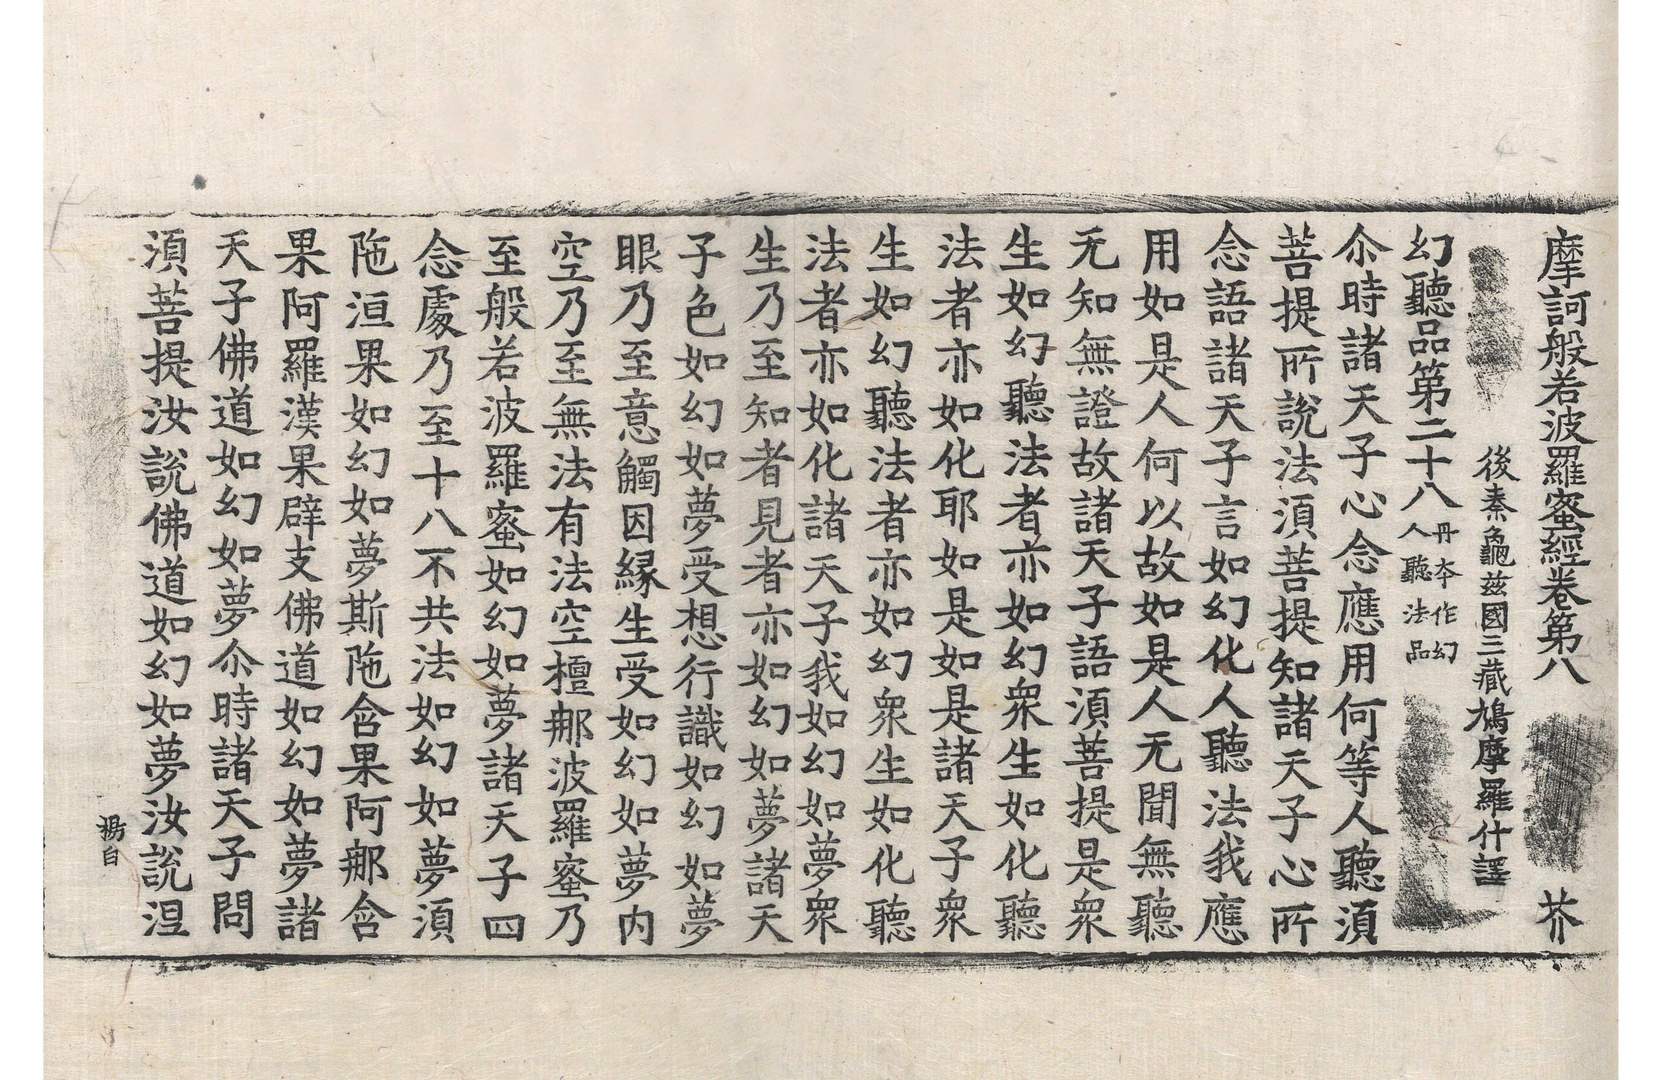 摩訶般若波羅蜜經卷第八 芥
後秦龜茲國三藏鳩摩羅什譯
幻聽品第二十八 丹本作幻人聽法品
尒時諸天子心念應用何等人聽湏
菩提所說法湏菩提知諸天子心所
念語諸天子言如幻化人聽法我應
用如是人何以故如是人无聞無聽
无知無證故諸天子語湏菩提是衆
生如幻聽法者亦如幻衆生如化聽
法者亦如化耶如是如是諸天子衆
生如幻聽法者亦如幻衆生如化聽
法者亦如化諸天子我如幻如夢衆
生乃至知者見者亦如幻如夢諸天
子色如幻如夢受想行識如幻如夢
眼乃至意觸因緣生受如幻如夢內
空乃至無法有法空檀那波羅蜜乃
至般若波羅蜜如幻如夢諸天子四
念處乃至十八不共法如幻如夢湏
陁洹果如幻如夢斯陁含果阿那含
果阿羅漢果辟支佛道如幻如夢諸
天子佛道如幻如夢尒時諸天子問
湏菩提汝說佛道如幻如夢汝說涅